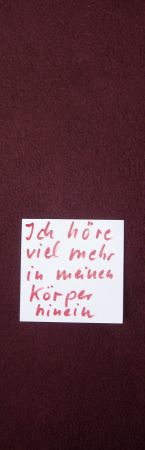 Ich höre
viel mehr
in meinen
Körper
hinein